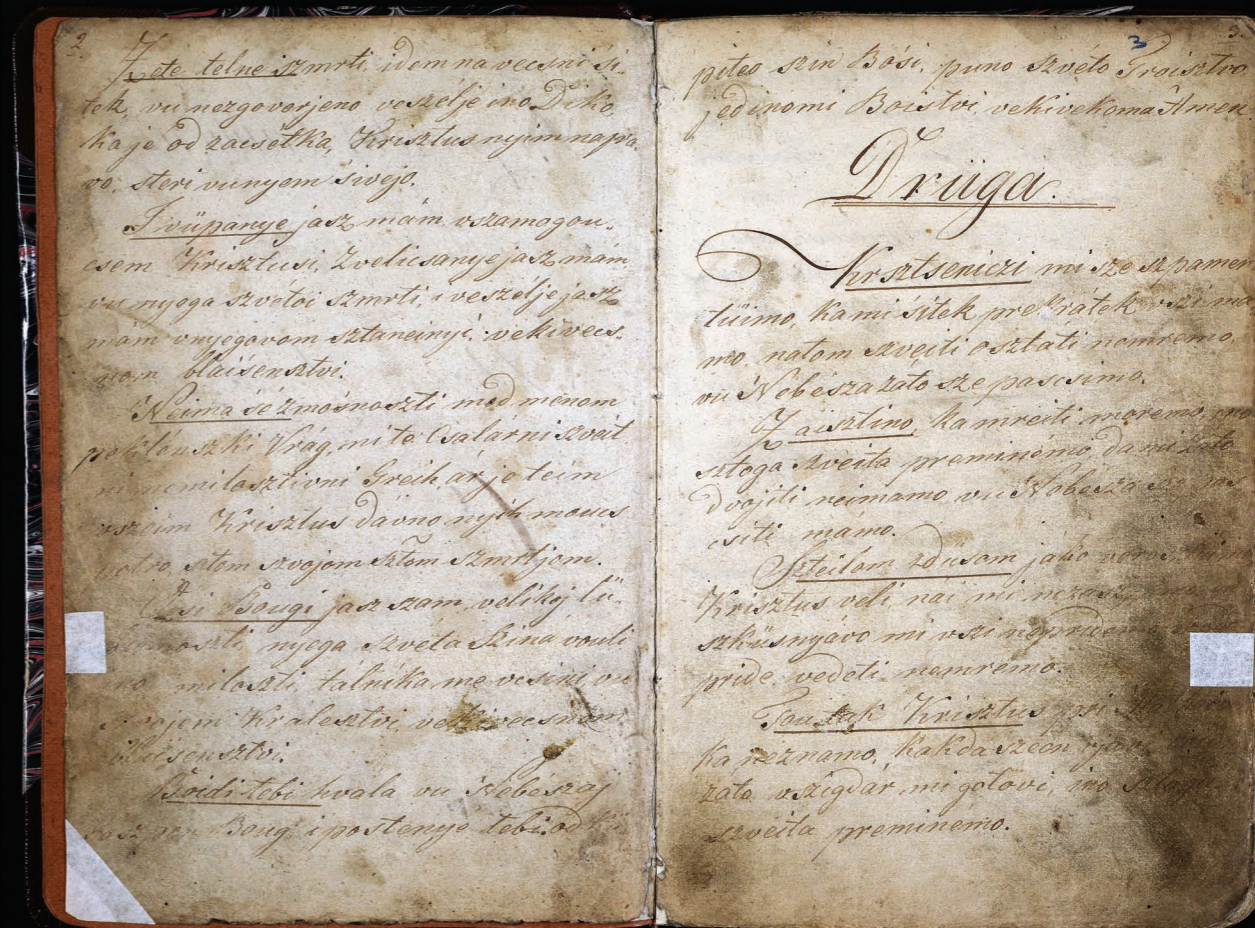 2
Z ete telne szmrti, idem na vecsni 'si-
tek, vu nezgovorjeno veszélje ino Diko,
ka je od zacsetka, Krisztus nyim napra-
vo, steri vunyem 'sivejo.
Vüpanye jasz mám vszamogou-
csem Krisztusi, Zvelicsanye jasz mám
vu nyega szvétoi szmrti, i veszélje jasz
mám vnyegovom sztaneinyi, vekivecs-
nom blái'sensztvi.
Neima 'sé zmo'snoszti med menom
peklénszki Vrág, ni te Csalárni szveit
ni nemilosztivni Greih, ár je teim
vszeim Krisztus dávno nyih moucs
potro, stom svojom sztom szmrtjom.
Bougi jasz szam, velikoj lü-
nyega szveta Szina vouli
miloszti, tálnika me vcsini, vu
Kralesztvi, vekivecsnom
Boidi tebi hvala vu Nebészaj
Boug, i postenye tebi, od
3
3
piteo szin Bo'si, puno szvéto Troisztvo,
jedinomi Boisztvi, vekivekoma Ámen.
Drüga.
Krsztseniczi mi sze szpamen
tüimo, ka mi 'sitek pre krátek vszi má
mo, natom szveiti osztati nemremo,
vu Nebésza zato sze pascsimo.
Zaisztino, ka mreiti moremo, ino
sztoga szveita preminémo, da mi zato
dvojiti neimamo, vu Nebésza
csiti mamo.
Steilom zdusom jáko
Krisztus veli nái mi
szküsnyávo mi vszi nepridemo
pride, vedeti nemremo.
Tou tak Krisztus
ka neznamo, kakda szeon
zato vszigdár, mi gotovi, ino
szveita preminemo.